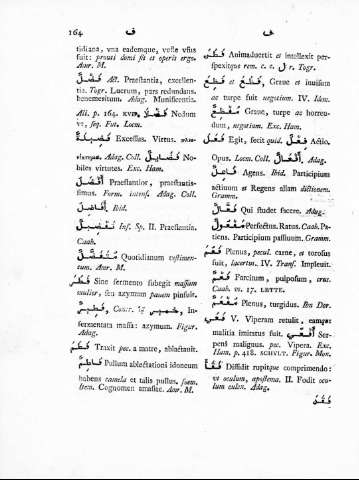 164 ف ف
tidiana, una eademque, veste usus
fuit: prouti domi sit et operis ergo.
Amr. M.
فَضْلٌ Act. Praestantia, excellen-
tia. Togr. Lucrum, pars redundans.
benemeritum. Adag. Munificentia.
Ali. p. 164. XVII, فَضْلًا Nodum
ut, seq. Fut. Locm.
فَضِيلَةٌ Excessus. Virtus.
Adag. Coll. فَضَايِلُ No-
biles virtutes. Exc. Ham.
أَفْضَلُ Praestantior, praestantis-
simus. Form. intens. Adag. Coll.
أَفَاضِلُ Ibid.
تَفْضِيلٌ Inf. Sp. II. Praestantia.
Caab.
مُتَفَضِّلٌ Quotidianum vestimen-
tum. Amr. M.
فَطَرَ Sine fermento subegit massam
mulier, seu azymum panem pinsuit.
فَطِيرٌ, Contr. خَمِيرٌ In-
fermentata massa: azymum. Figur.
Adag.
فَطَمَ Traxit pec. a matre, ablactauit.
فَاطِمٌ Pullum ablactationi idoneum
habens camela et talis pullus. foem.
Item. Cognomen amasiae. Amr. M.
فَطَنَ Animaduertit et intellexit per-
spexitque rem. c. c. ل r. Togr.
فَظُعَ et فَظِيعٌ, Graue et inuisum
ac turpe fuit negotium. IV. Idem.
مُفْظِعٌ Graue, turpe ac horren-
dum, negotium. Exc. Ham.
فَعَلَ Egit, fecit quid. فِعْلٌ Actio.
Opus. Locm. Coll. أَفْعَالٌ. Adag.
فَاعِلٌ Agens. Ibid. Participium
actiuum et Regens aliam dictionem.
Gramm.
فَعَّالٌ Qui studet facere. Adag.
مَفْعُولٌ Perfectus. Ratus. Caab. Pa-
tiens. Participium passiuum. Gramm.
فَعُمَ Plenus, pecul. carne, et torosus
fuit, lacertus. IV. Transf. Impleuit.
فَعْمٌ Farcinum, pulposum, crus.
Caab. vs. 17. LETTE.
مُفْعَمٌ Plenus, turgidus. Ibn Dor.
فَعِيَ V. Viperam retulit, eamque
malitia imitatus fuit. أَفْعًى Ser-
pens malignus. pec. Vipera. Exc.
Ham. p. 418. SCHVLT. Figur. Mon.
فَقَأَ Diffidit rupitque comprimendo:
ut oculum, apostema. II. Fodit ocu-
lum culex. Adag.
فَقَدَ